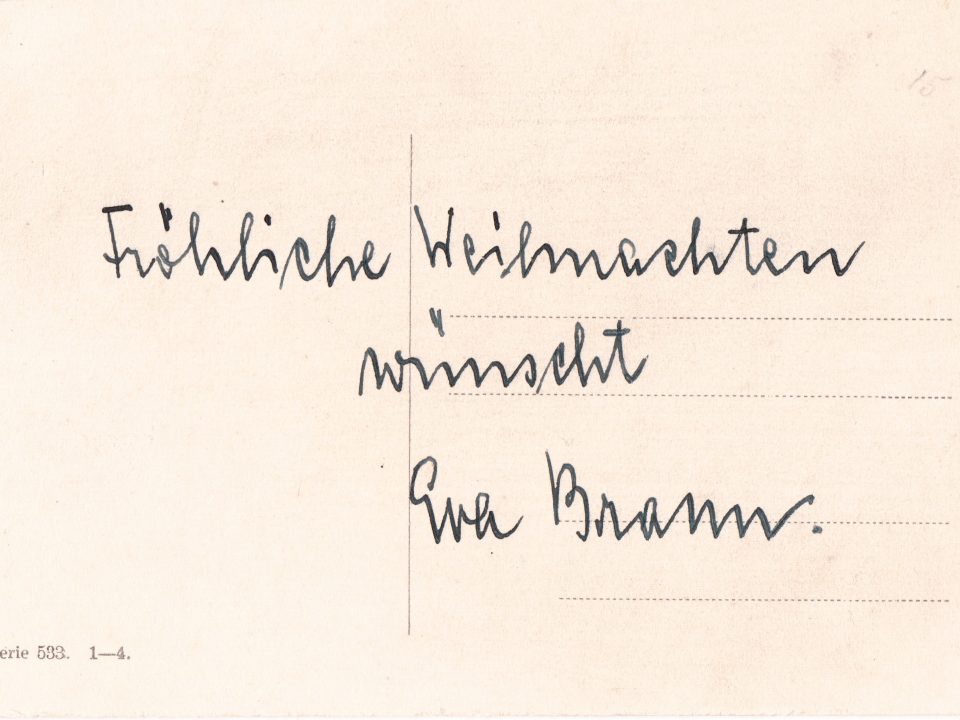 15
Fröhliche Weihnachten
wünscht
Eva Braun.
erie 533. 1—4.